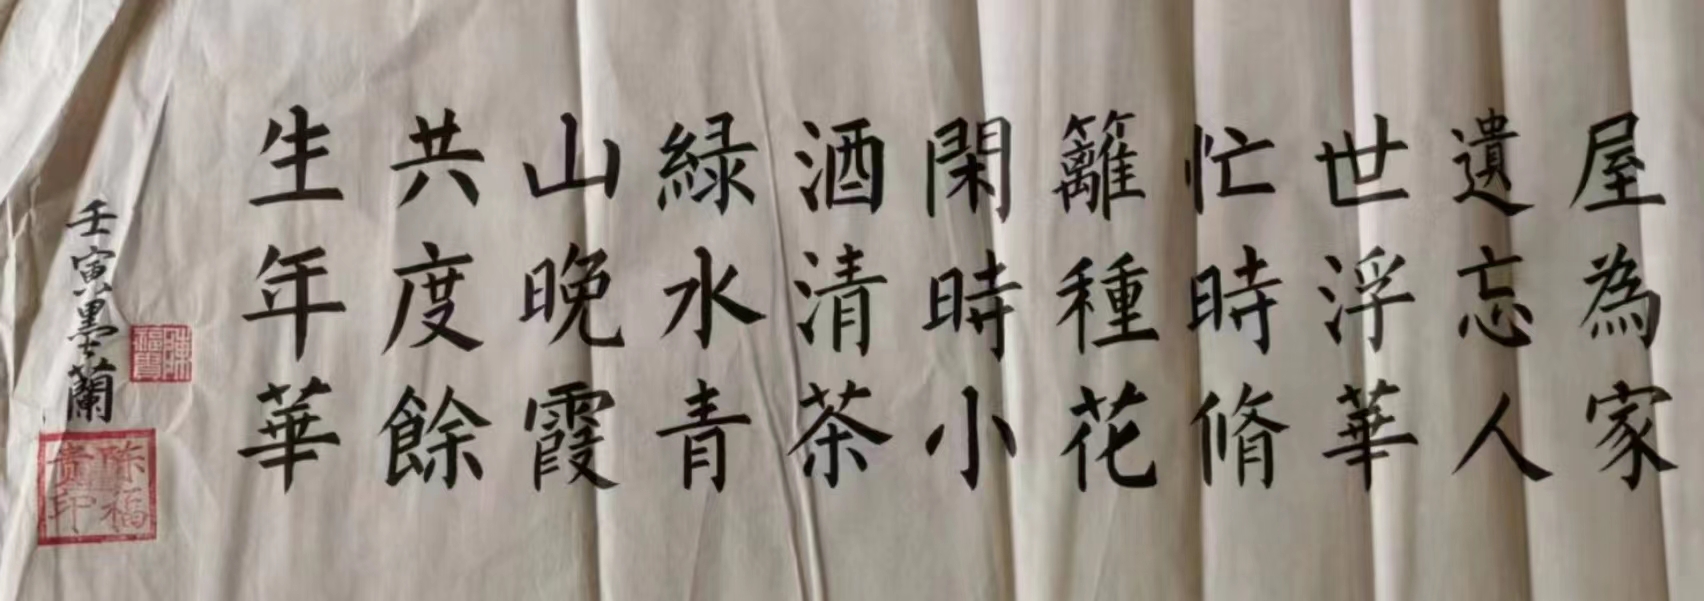 屋為家
遺忘人
世浮華
忙時脩
籬種花
閑時小
酒清茶
緑水青
山晚霞
共度餘
生年華
壬寅墨蘭
陳福貴
陈福贵印